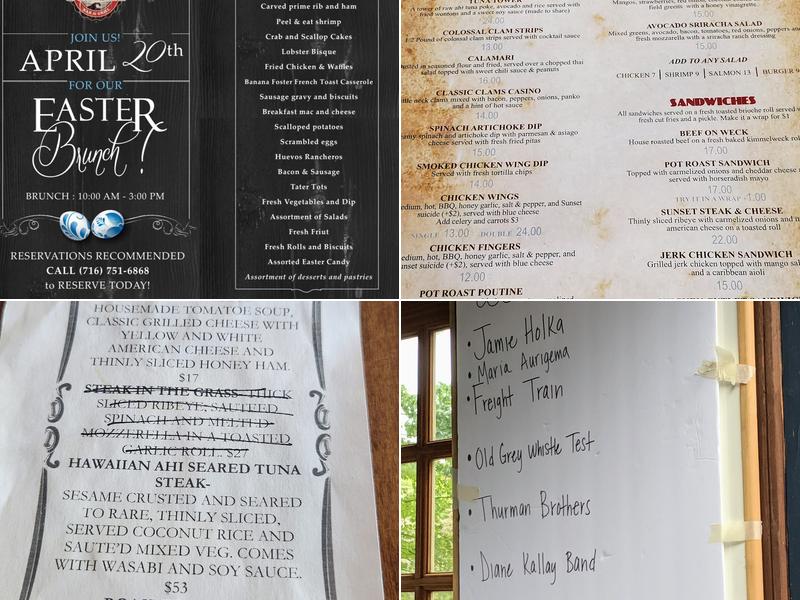 JOIN US!
APRIL 20th
FOR OUR
EASTER
Brunch!
BRUNCH : 10:00 AM - 3:00 PM
RESERVATIONS RECOMMENDED
CALL (716) 751-6868
to RESERVE TODAY!
Carved prime rib and ham
Peel & eat shrimp
Crab and Scallop Cakes
Lobster Bisque
Fried Chicken & Waffles
Banana Foster French Toast Casserole
Sausage gravy and biscuits
Breakfast mac and cheese
Scalloped potatoes
Scrambled eggs
Huevos Rancheros
Bacon & Sausage
Tater Tots
Fresh Vegetables and Dip
Assortment of Salads
Fresh Friut
Fresh Rolls and Biscuits
Assorted Easter Candy
Assortment of desserts and pastries
TUNA TOWER
A tower of raw ahi tuna poke, avocado and rice served with
fried wontons and a sweet soy sauce (made to share)
24.00
COLOSSAL CLAM STRIPS
1/2 Pound of colossal clam strips served with cocktail sauce
13.00
CALAMARI
in seasoned flour and fried, served over a chopped thai
salad topped with sweet chili sauce & peanuts
16.00
CLASSIC CLAMS CASINO
neck clams mixed with bacon, peppers, onions, panko
and a hint of hot sauce
14.00
SPINACH ARTICHOKE DIP
spinach and artichoke dip with parmesan & asiago
cheese served with fresh fried pitas
15.00
SMOKED CHICKEN WING DIP
Served with fresh tortilla chips
14.00
CHICKEN WINGS
hot, BBQ, honey garlic, salt & pepper, and Sunset
suicide (+$2), served with blue cheese
Add celery and carrots $3
SINGLE 13.00 DOUBLE 24.00
CHICKEN FINGERS
hot, BBQ, honey garlic, salt & pepper, and
suicide (+$2), served with blue cheese
12.00
POT ROAST POUTINE
Mangos, strawberries, red
field greens with a honey vinaigrette.
15.00
AVOCADO SRIRACHA SALAD
Mixed greens, avocado, bacon, tomatoes, red onions, peppers
fresh mozzarella with a sriracha ranch dressing
15.00
ADD TO ANY SALAD
CHICKEN 7 | SHRIMP 9 | SALMON 13 | BURGER 9
SANDWICHES
All sandwiches served on a fresh toasted brioche roll served
fresh cut fries and a pickle. Make it a wrap for $1
BEEF ON WECK
House roasted beef on a fresh baked kimmelweck
17.00
POT ROAST SANDWICH
Topped with carmelized onions and cheddar cheese
served with horseradish mayo
17.00
TRY IT IN A WRAP -1.00
SUNSET STEAK & CHEESE
Thinly sliced ribeye with carmelized onions and
american cheese on a toasted roll
22.00
JERK CHICKEN SANDWICH
Grilled jerk chicken topped with mango
and a caribbean aioli
15.00
HOUSEMADE TOMATOE SOUP,
CLASSIC GRILLED CHEESE WITH
YELLOW AND WHITE
AMERICAN CHEESE AND
THINLY SLICED HONEY HAM.
$17
STEAK IN THE GRASS- THICK
SLICED RIBEYE, SAUTEED
SPINACH AND MELTED
MOZZERELLA IN A TOASTED
GARLIC ROLL. $27
HAWAIIAN AHI SEARED TUNA
STEAK-
SESAME CRUSTED AND SEARED
TO RARE, THINLY SLICED,
SERVED COCONUT RICE AND
SAUTE'D MIXED VEG. COMES
WITH WASABI AND SOY SAUCE.
$53
• Jamie Holka
• Maria Aurigema
• Freight Train
• Old Grey Whistle Test
• Thurman Brothers
• Diane Kallay Band